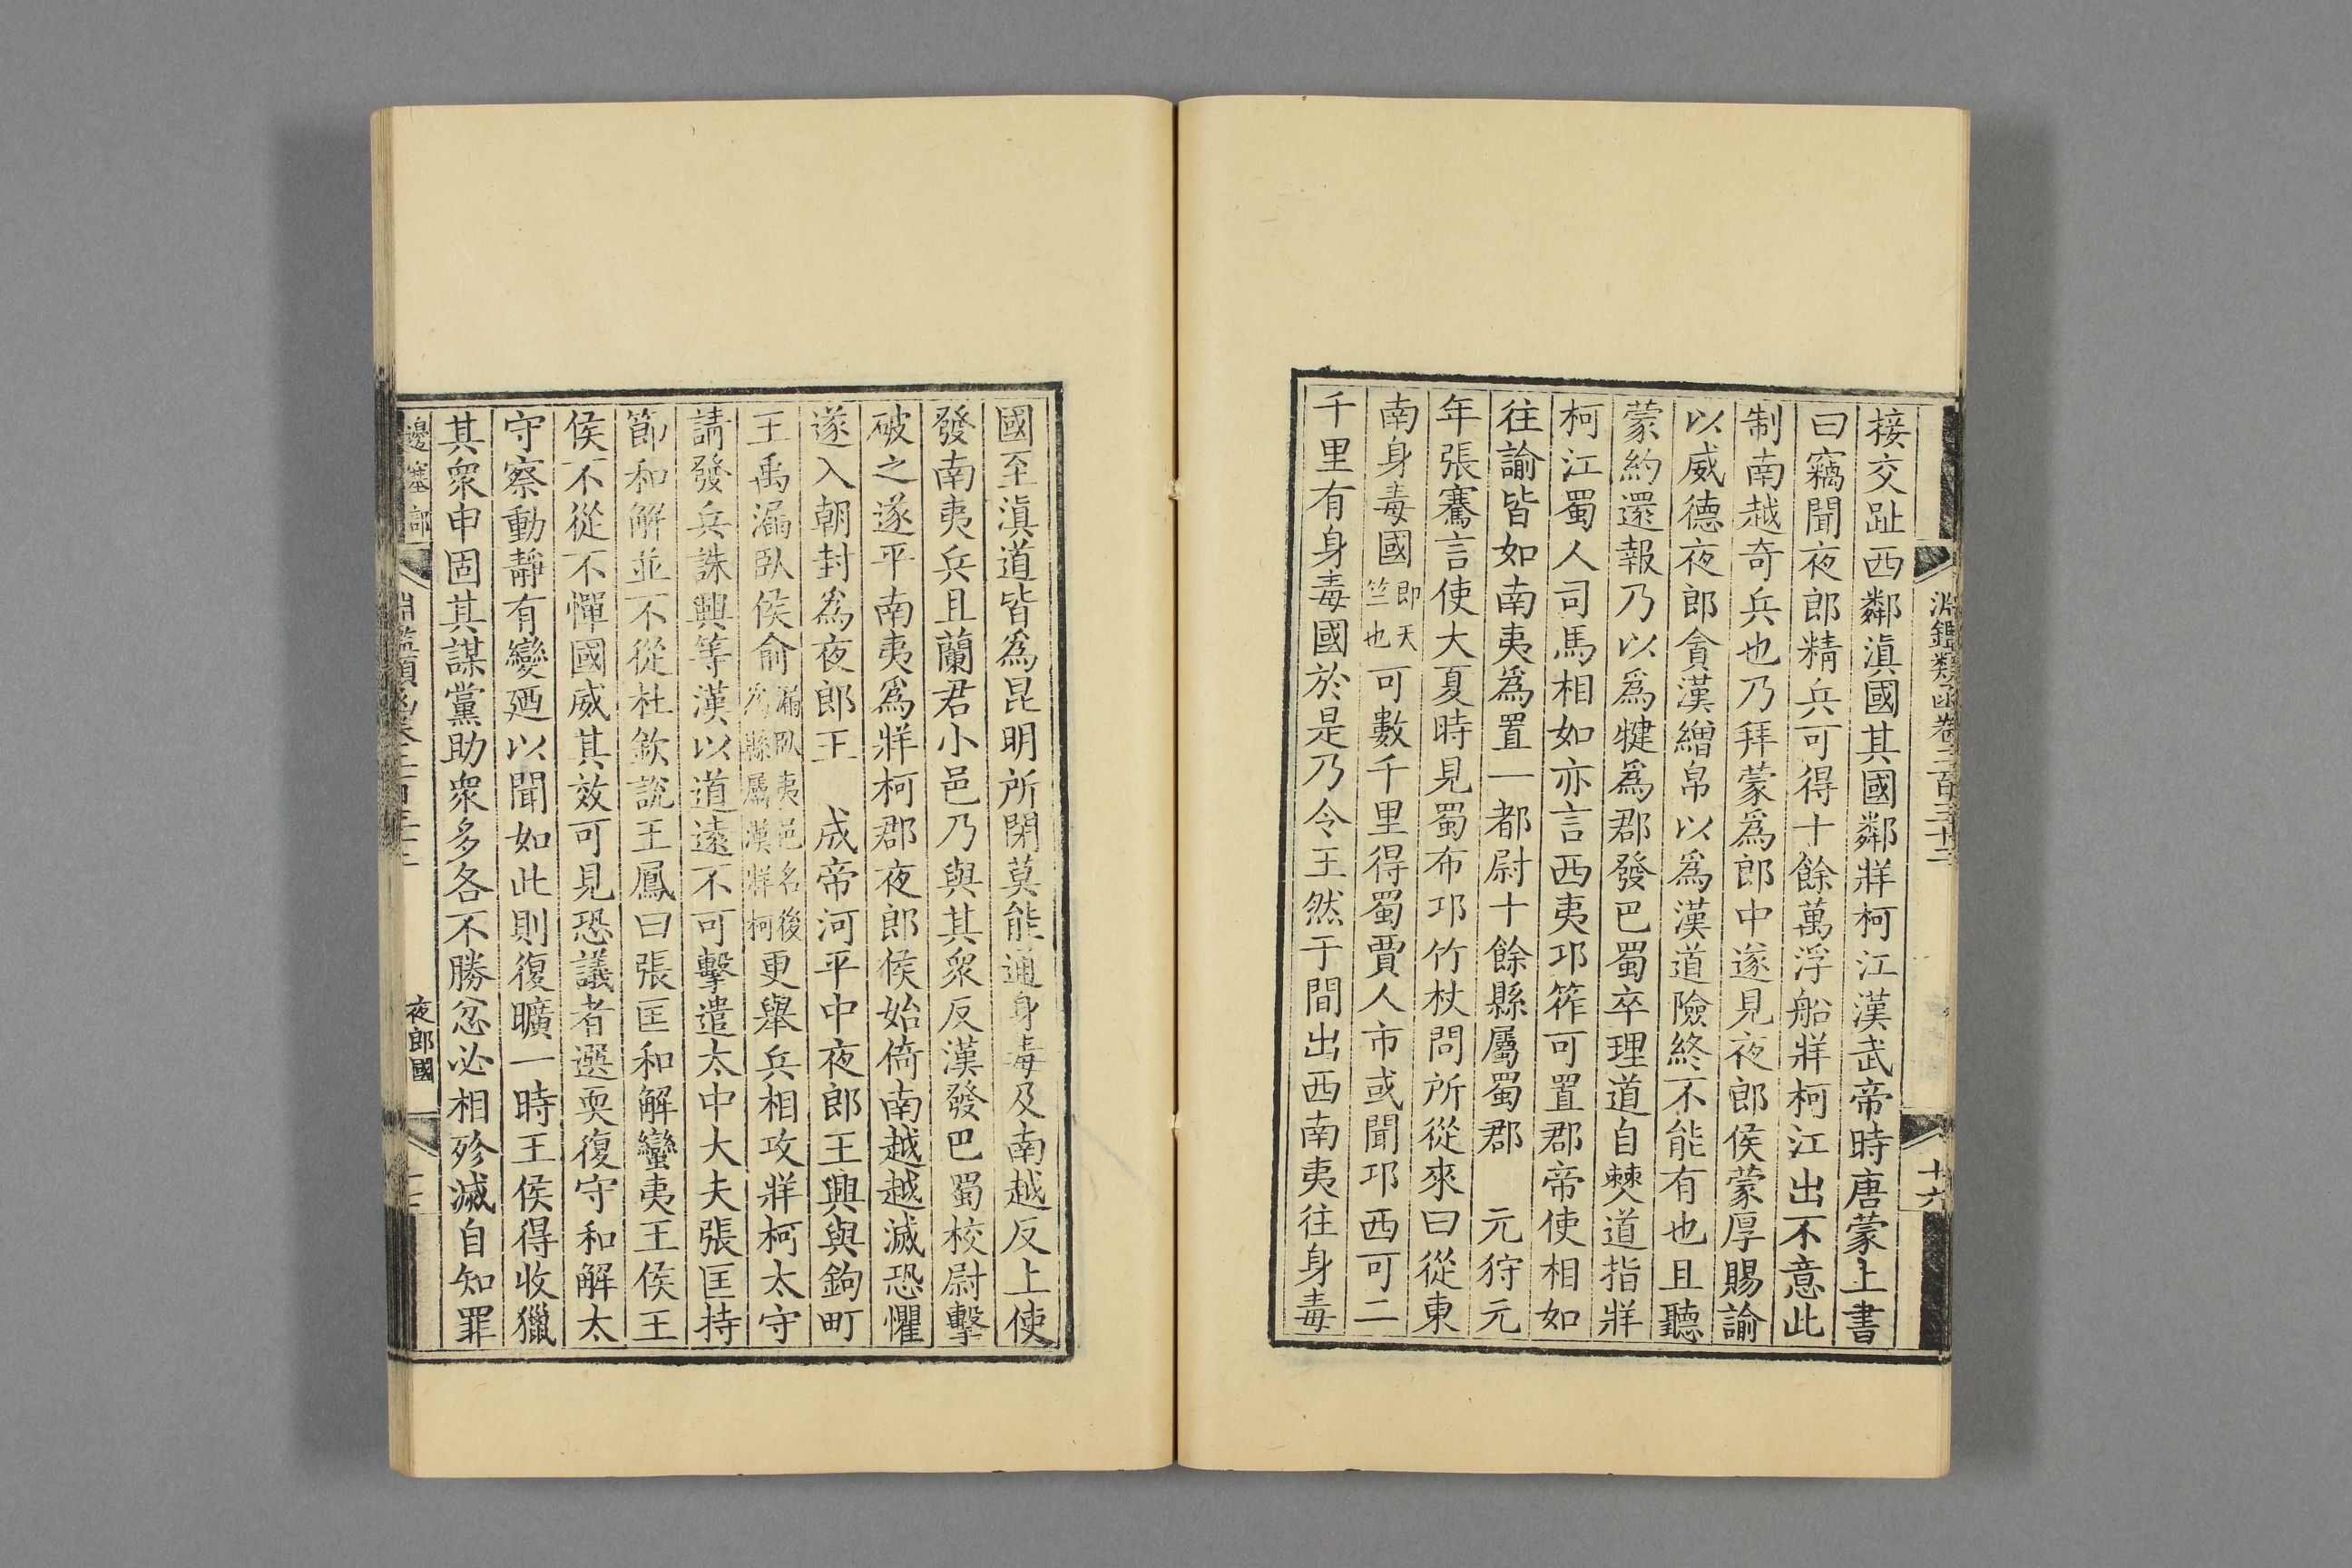 淵鑑類函卷二百三十二
十六
接交趾西鄰滇國其國鄰牂柯江漢武帝時唐蒙上書
曰竊聞夜郎精兵可得十餘萬浮船牂柯江出不意此
制南越奇兵也乃拜蒙爲郎中遂見夜郎侯蒙厚賜諭
以威德夜郎貪漢繒帛以爲漢道險終不能有也且聽
蒙約還報乃以爲犍爲郡發巴蜀卒理道自僰道指牂
柯江蜀人司馬相如亦言西夷邛筰可置郡帝使相如
往諭皆如南夷爲置一都尉十餘縣屬蜀郡 元狩元
年張騫言使大夏時見蜀布邛竹杖問所從來曰從東
南身毒國即天竺也可數千里得蜀賈人市或聞邛西可二
千里有身毒國於是乃令王然于間出西南夷往身毒
國至滇道皆爲昆明所閉莫能通身毒及南越反上使
發南夷兵且蘭君小邑乃與其衆反漢發巴蜀校尉擊
破之遂平南夷爲牂柯郡夜郎侯始倚南越越滅恐懼
遂入朝封爲夜郎王 成帝河平中夜郎王興與鉤町
王禹漏臥侯俞漏臥夷邑名後爲縣屬漢牂柯更舉兵相攻牂柯太守
請發兵誅興等漢以道遠不可擊遣太中大夫張匡持
節和解並不從杜欽說王鳳曰張匡和解蠻夷王侯王
侯不從不憚國威其效可見恐議者選耎復守和解太
守察動靜有變廼以聞如此則復曠一時王侯得收獵
其衆申固其謀黨助衆多各不勝忿必相殄滅自知罪
邊塞部
夜郎國